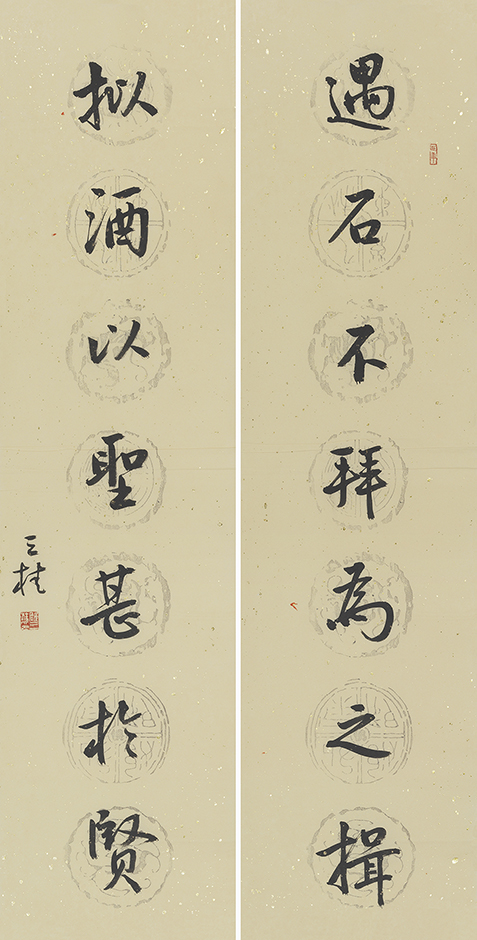 遇石不拜為之揖
拟酒以聖甚於賢
桂